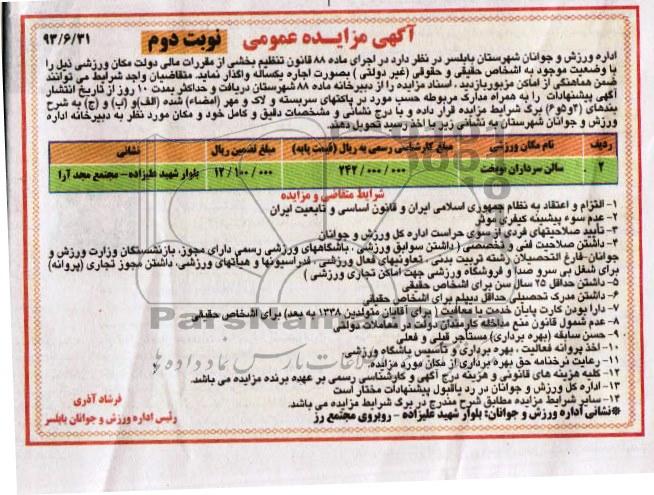 آگهی مزایده عمومی نوبت دوم ۹۳/۶/۳۱
اداره ورزش و جوانان شهرستان بابلسر در نظر دارد در اجرای ماده ۸۸ قانون تنظیم بخشی از مقررات مالی دولت مکان ورزشی ذیل را
با وضعیت موجود به اشخاص حقیقی و حقوقی (غیر دولتی) بصورت اجاره یکساله واگذار نماید. متقاضیان واجد شرایط می توانند
ضمن هماهنگی از اماکن مزبوربازدید، اسناد مزایده را از دبیرخانه ماده ۸۸ شهرستان دریافت و حداکثر بمدت ۱۰ روز از تاریخ انتشار
آگهی پیشنهادات را به همراه مدارک مربوطه حسب مورد در پاکتهای سربسته و لاک و مهر (امضاء) شده (الف)و (ب) و (ج) به شرح
بندهای (۴و۵و۶) برگ شرایط مزایده قرار داده و با درج نشانی و مشخصات دقیق و کامل خود و مکان مورد نظر به دبیرخانه اداره
ورزش و جوانان شهرستان به نشانی زیر با اخذ رسید تحویل دهند.
ردیف نام مکان ورزشی مبلغ کارشناسی رسمی به ریال (قیمت پایه) مبلغ تضمین ریال نشانی
۲ سالن سرداران نوبخت ۲۴۲/۰۰۰/۰۰۰ ۱۲/۱۰۰/۰۰۰ بلوار شهید علیزاده – مجتمع مجد آرا
شرایط متقاضی و مزایده
۱- التزام و اعتقاد به نظام جمهوری اسلامی ایران و قانون اساسی و تابعیت ایران
۲- عدم سوء پیشینه کیفری موثر
۳- تأیید صلاحیتهای فردی از سوی حراست اداره کل ورزش و جوانان
۴- داشتن صلاحیت فنی و تخصصی ( داشتن سوابق ورزشی ، باشگاههای ورزشی رسمی دارای مجوز، بازنشستگان وزارت ورزش و
جوانان-فارغ التحصیلان رشته تربیت بدنی – تعاونیهای فعال ورزشی- فدراسیونها و هیأتهای ورزشی، داشتن مجوز تجاری (پروانه)
برای شغل بی سرو صدا و فروشگاه ورزشی جهت اماکن تجاری ورزشی )
۵- داشتن حداقل ۲۵ سال سن برای اشخاص حقیقی
۶- داشتن مدرک تحصیلی حداقل دیپلم برای اشخاص حقیقی
۷- دارا بودن کارت پایان خدمت یا معافیت ( برای آقایان متولدین ۱۳۳۸ به بعد) برای اشخاص حقیقی
۸- عدم شمول قانون منع مداخله کارمندان دولت در معاملات دولتی
۹- حسن سابقه (بهره برداری) مستأجر قبلی و فعلی
۱۰- اخذ پروانه فعالیت ، بهره برداری و تأسیس باشگاه ورزشی
۱۱- رعایت نرخنامه حق بهره برداری از مکان مورد مزایده.
۱۲- کلیه هزینه های قانونی و هزینه درج آگهی و کارشناسی رسمی بر عهده برنده مزایده می باشد.
۱۳- اداره کل ورزش و جوانان در رد یاقبول پیشنهادات مختار است
۱۴- سایر شرایط مزایده مطابق شرح مندرج در برگ شرایط مزایده می باشد.
※نشانی اداره ورزش و جوانان: بلوار شهید علیزاده – روبروی مجتمع رز
فرشاد آذری
رئیس اداره ورزش و جوانان بابلسر